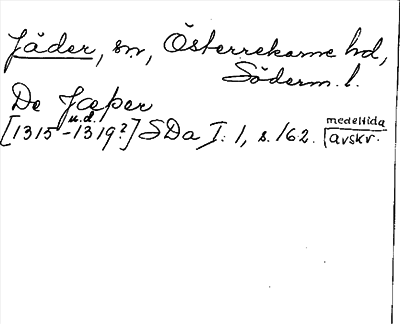 Jäder, sn, Österrekarne hd,
Söderm. l.
De Jæper
u.d.
[1315-1319?] SDa I: 1, s. 162. medeltida
avskr.